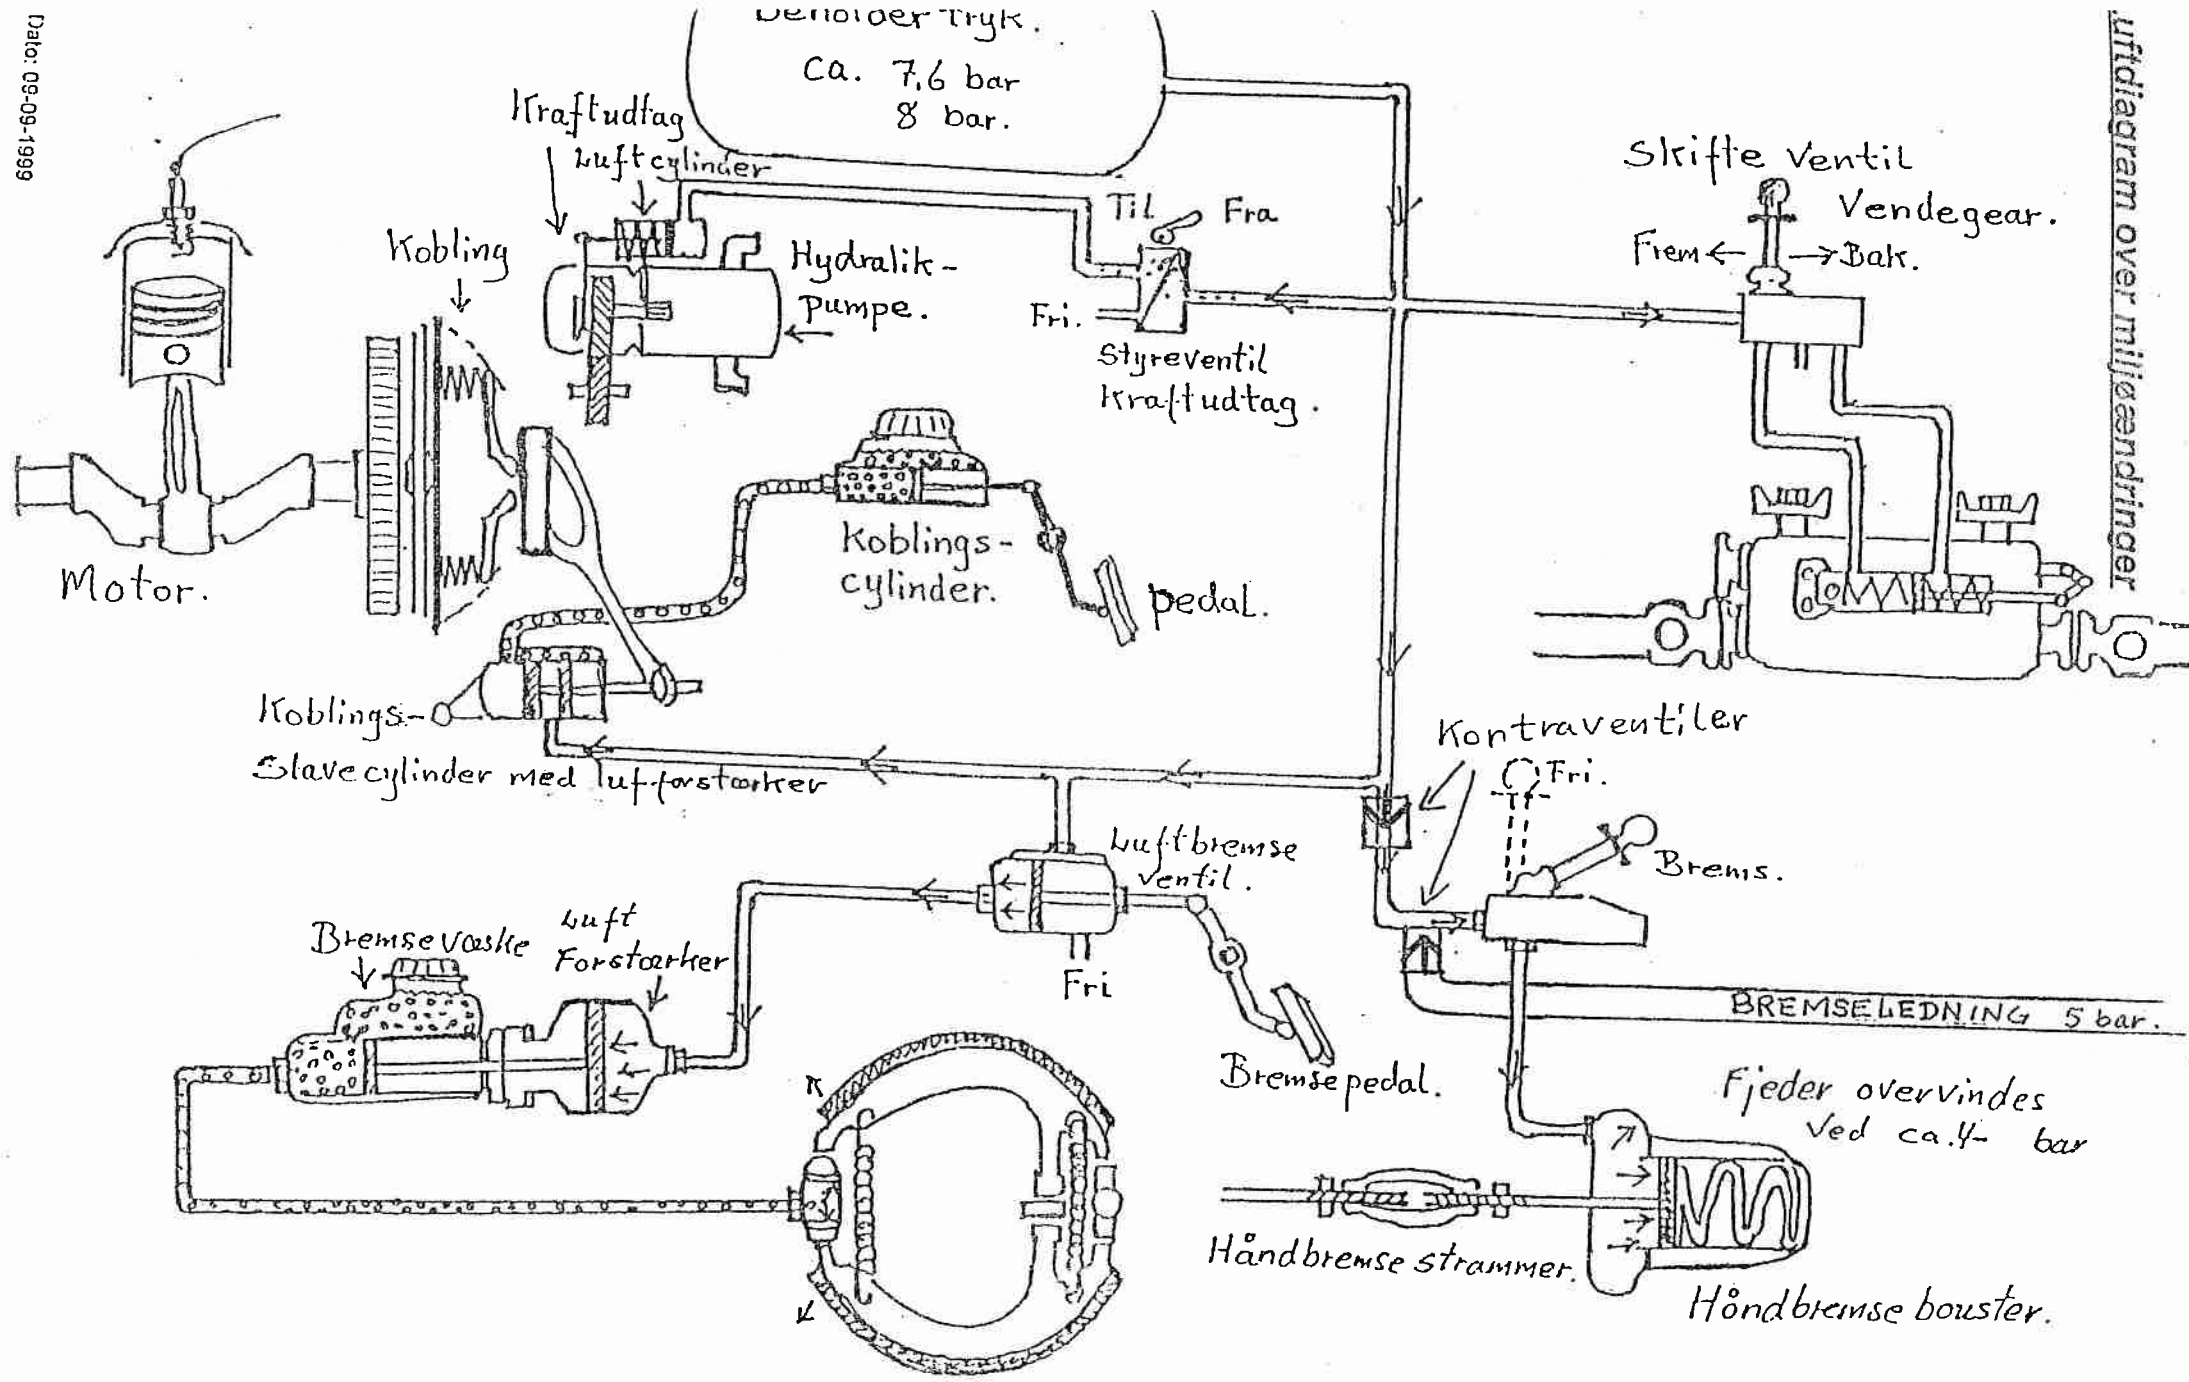 Dato: 09-09-1999
Luftdiagram over miljøændringer
Beholder Tryk.
Ca. 7,6 bar
8 bar.
Kraftudtag
Luftcylinder
Kobling
Hydralik-
Pumpe.
Til
Fra
Fri.
Styreventil
Kraftudtag.
Skifte Ventil
Vendegear.
Frem
Bak.
Motor.
Koblings-
cylinder.
pedal.
Koblings-
Slavecylinder med luftforstærker
Kontraventiler
Fri.
Brems.
Luftbremse
ventil.
Fri
Bremsevæske
Luft
Forstærker
Bremsepedal.
BREMSELEDNING 5 bar.
Fjeder overvindes
Ved ca. 4- bar
Håndbremse strammer.
Håndbremse bouster.